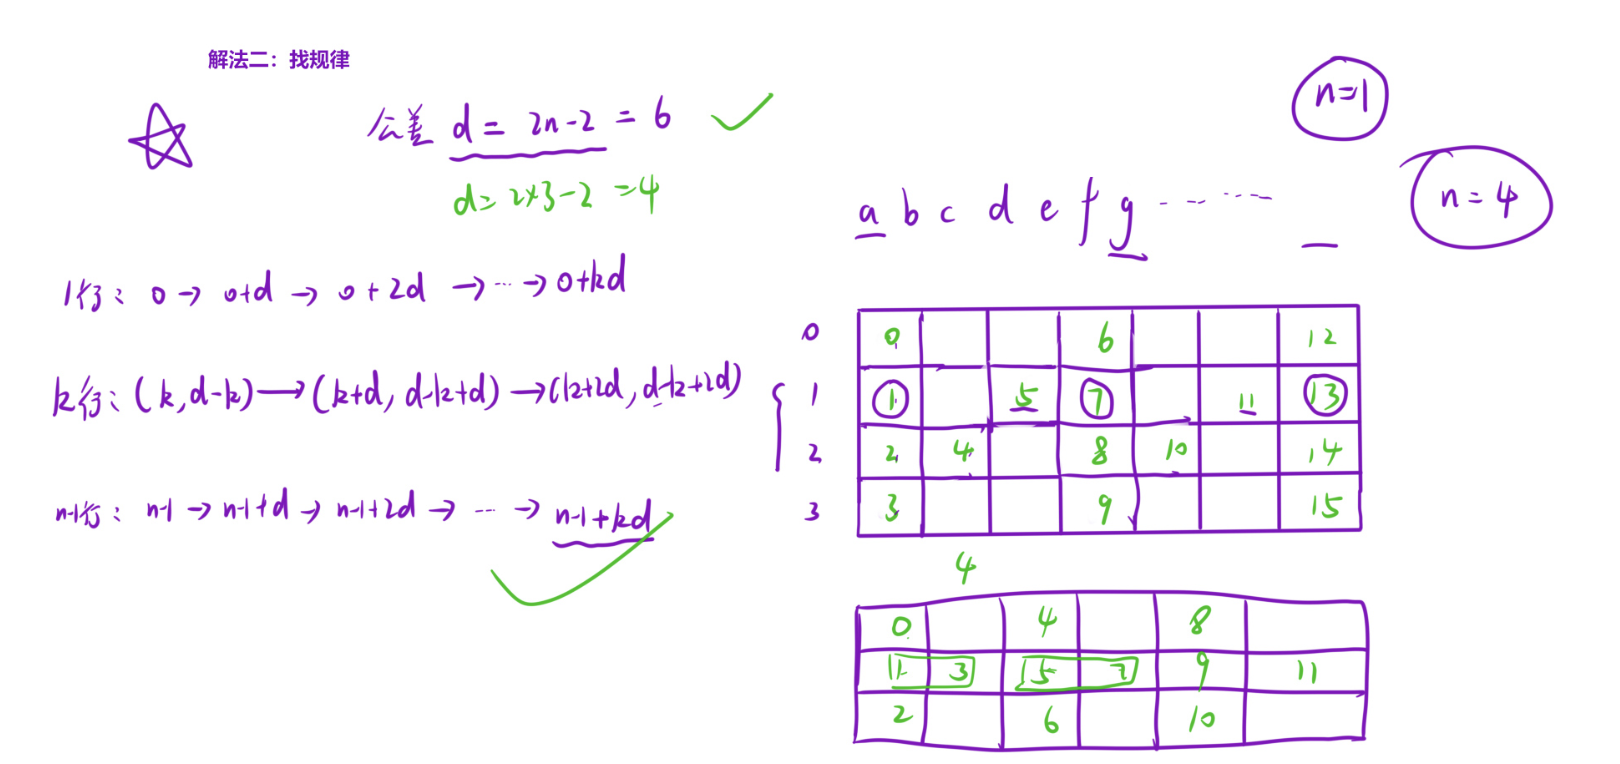 解法二：找规律
公差 d = 2n-2 = 6
d = 2×3-2 = 4
1行： 0 → 0+d → 0+2d → ... → 0+kd
k行：(k, d-k) → (k+d, d-k+d) → (k+2d, d-k+2d)
n-1行： n-1 → n-1+d → n-1+2d → ... → n-1+kd
n=1
n = 4
a b c d e f g ......
0 0 6 12
1 1 5 7 11 13
2 2 4 8 10 14
3 3 9 15
4
0 4 8
1 3 5 7 9 11
2 6 10